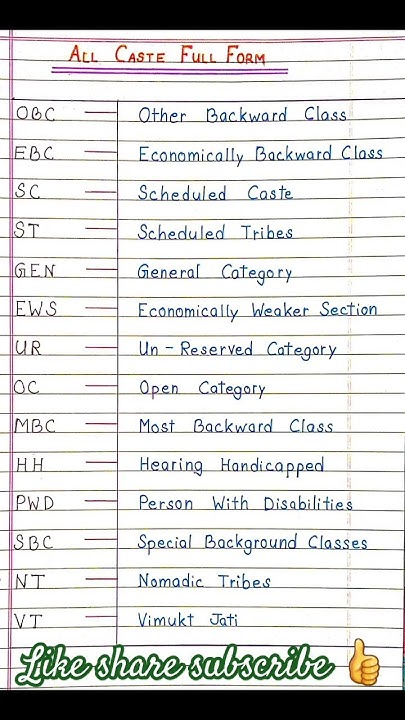 ALL CASTE FULL FORM
OBC — Other Backward Class
EBC — Economically Backward Class
SC — Scheduled Caste
ST — Scheduled Tribes
GEN — General Category
EWS — Economically Weaker Section
UR — Un-Reserved Category
OC — Open Category
MBC — Most Backward Class
HH — Hearing Handicapped
PWD — Person With Disabilities
SBC — Special Background Classes
NT — Nomadic Tribes
VT — Vimukt Jati
Like share subscribe 👍